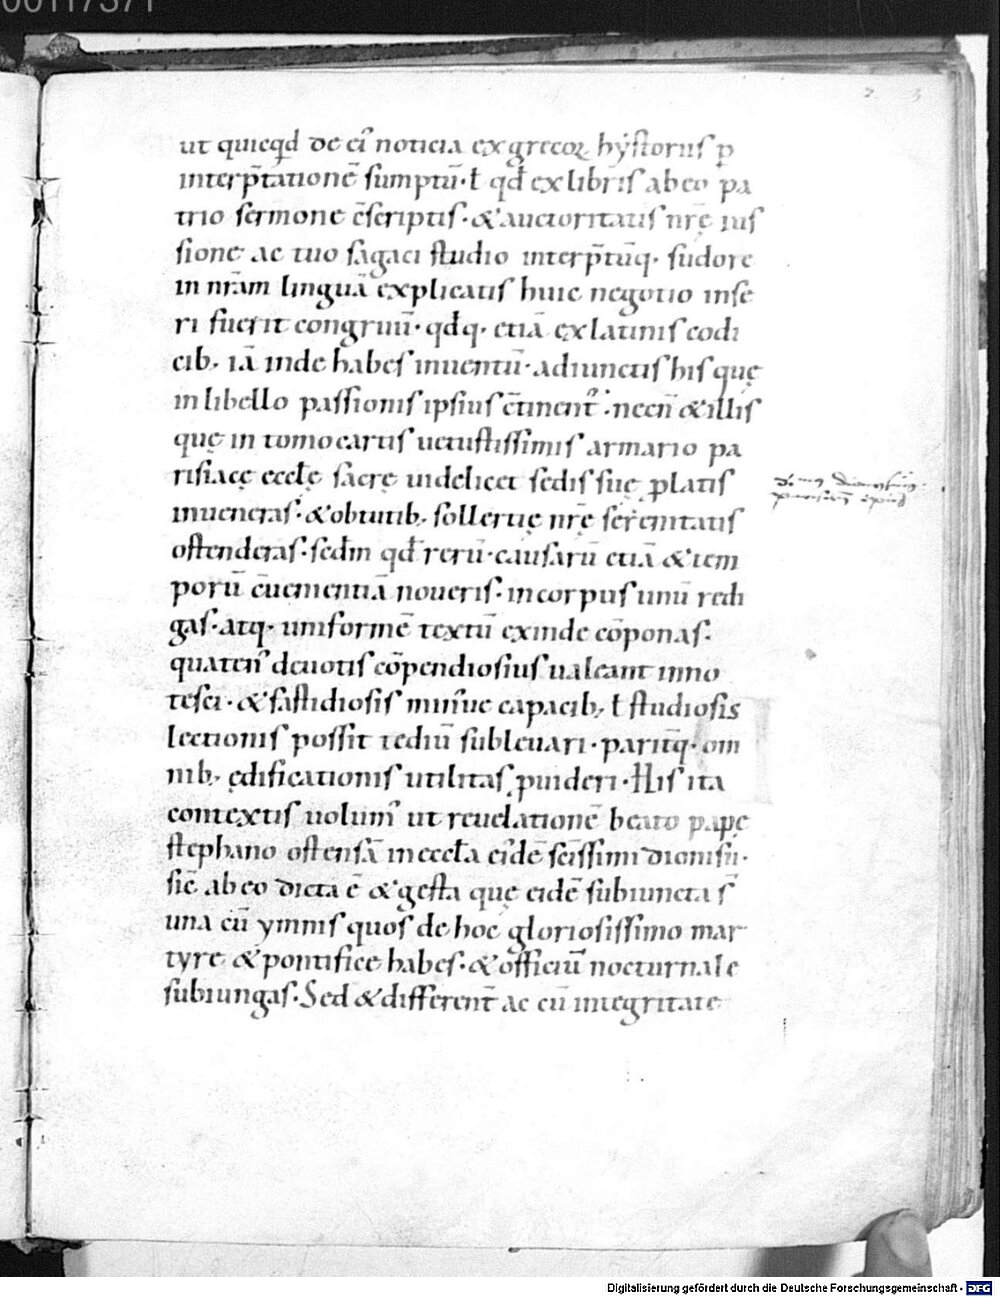 00117371
2 3
ut quicqd de ei᾽ noticia ex grecoꝝ hẏstoriis ꝑ
interp̄tationē sumptū· ł qđ ex libris ab eo pa
trio sermone c̄scriptis· & auctoritatis nr̄ę ius
sione ac tuo sagaci studio interp̄tūq· sudore
in nr̄am linguā explicatis huic negotio inse
ri fuerit congruū· qđq· etiā ex latinis codi
cib; iā inde habes inuentū· adiunctis his quę
in libello passionis ipsius c̄tinent᾽· necn̄ & illis
quę in tomo cartis uetustissimis armario pa
risiacę eccłę sacrę uidelicet sedis suę p̄latis
inueneras· & obtutib; sollertię nr̄ę serenitatis
ostenderas· scđm qđ rerū· causarū etiā & tem
porū c̄uenientiā noueris· in corpus unū redi
gas· atq· uniformē textū exinde cōponas·
quaten᾽ deuotis cōpendiosius ualeant inno
tesci· & fastidiosis min᾽ue capacib; ł studiosis
lectionis possit tediū subleuari· parit̄q· om
nib; ędificationis utilitas ꝓuideri· His ita
contextis uolum᾽ ut reuelationē beato papę
stephano ostensā in eccła eidē sc̄issimi dionisii·
sic̄ ab eo dicta ē & gesta quę eidē subiuncta s̄
una cū ymnis quos de hoc gloriosissimo mar
tyre & pontifice habes· & officiū nocturnale
subiungas· Sed & different̄ ac cū integritate
Digitalisierung gefördert durch die Deutsche Forschungsgemeinschaft - DFG